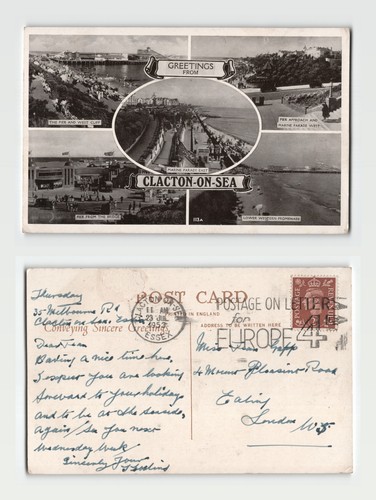 GREETINGS
FROM
THE PIER AND WEST CLIFF
PIER APPROACH AND
MARINE PARADE WEST
MARINE PARADE EAST
CLACTON-ON-SEA
PIER FROM THE
LOWER WESTERN PROMENADE
POST CARD
IN ENGLAND
Conveying Sincere Greetings
ADDRESS TO BE WRITTEN HERE
CLACTON-ON-SEA
11 AM
23 JUL
1953
ESSEX
POSTAGE ON LETTERS
for
EUROPE 4D
Thursday
35 Rd
Clacton on Sea Essex
Dear
Having a nice time here,
I expect you are looking
forward to your holidays
and to be at the Seaside
Again. See you next
Wednesday Week
Sincerely Yours
Miss
4 Mount Pleasant Road
Ealing
London W5